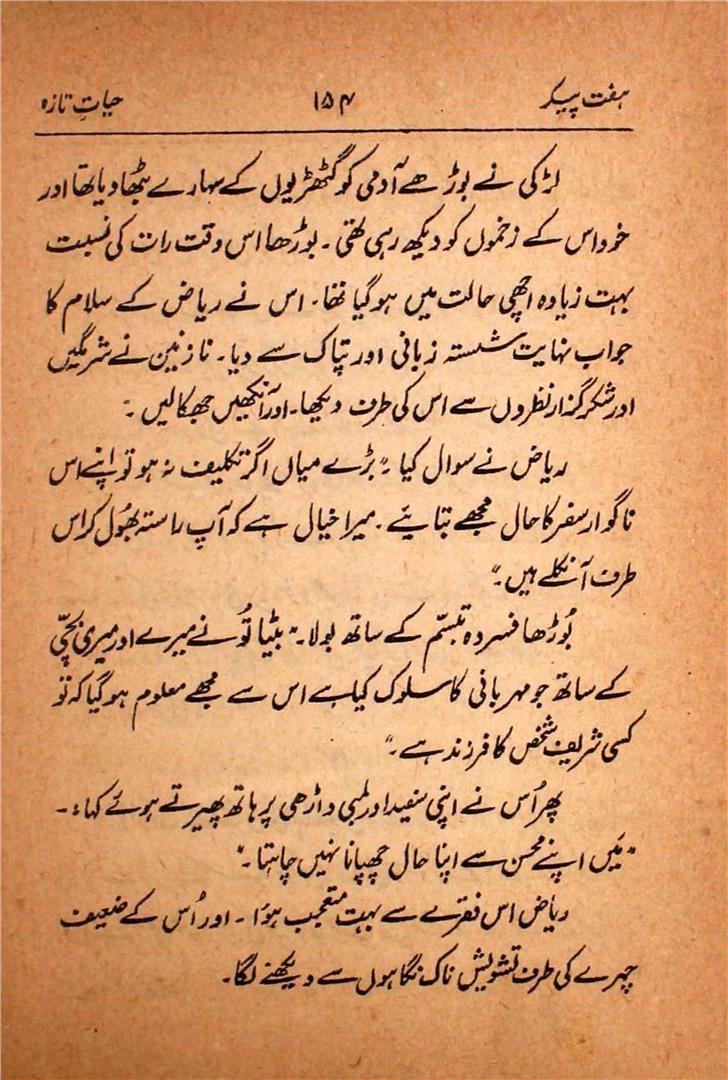 ہفت پیکر ۱۵۴ حیاتِ تازہ
لڑکی نے بوڑھے آدمی کو گٹھڑیوں کے سہارے بٹھا دیا تھا اور
خود اس کے زخموں کو دیکھ رہی تھی۔ بوڑھا اس وقت رات کی نسبت
بہت زیادہ اچھی حالت میں ہو گیا تھا۔ اس نے ریاض کے سلام کا
جواب نہایت شستہ زبانی اور تپاک سے دیا۔ نازنین نے شرمگیں
اور شکر گزار نظروں سے اس کی طرف دیکھا۔ اور آنکھیں جھکا لیں۔
ریاض نے سوال کیا۔ "بڑے میاں اگر تکلیف نہ ہو تو اپنے اس
ناگوار سفر کا حال مجھے بتائیے۔ میرا خیال ہے کہ آپ راستہ بھُول کر اس
طرف آ نکلے ہیں۔"
بُوڑھا فسردہ تبسّم کے ساتھ بولا۔ "بیٹا تُو نے میرے اور میری بچّی
کے ساتھ جو مہربانی کا سلوک کیا ہے اس سے مجھے معلوم ہو گیا کہ تو
کسی شریف شخص کا فرزند ہے۔"
پھر اُس نے اپنی سفید اور لمبی داڑھی پر ہاتھ پھیرتے ہوئے کہا:۔
"مَیں اپنے محسن سے اپنا حال چھپانا نہیں چاہتا۔"
ریاض اس فقرے سے بہت متعجب ہوا۔ اور اُس کے ضعیف
چہرے کی طرف تشویش ناک نگاہوں سے دیکھنے لگا۔